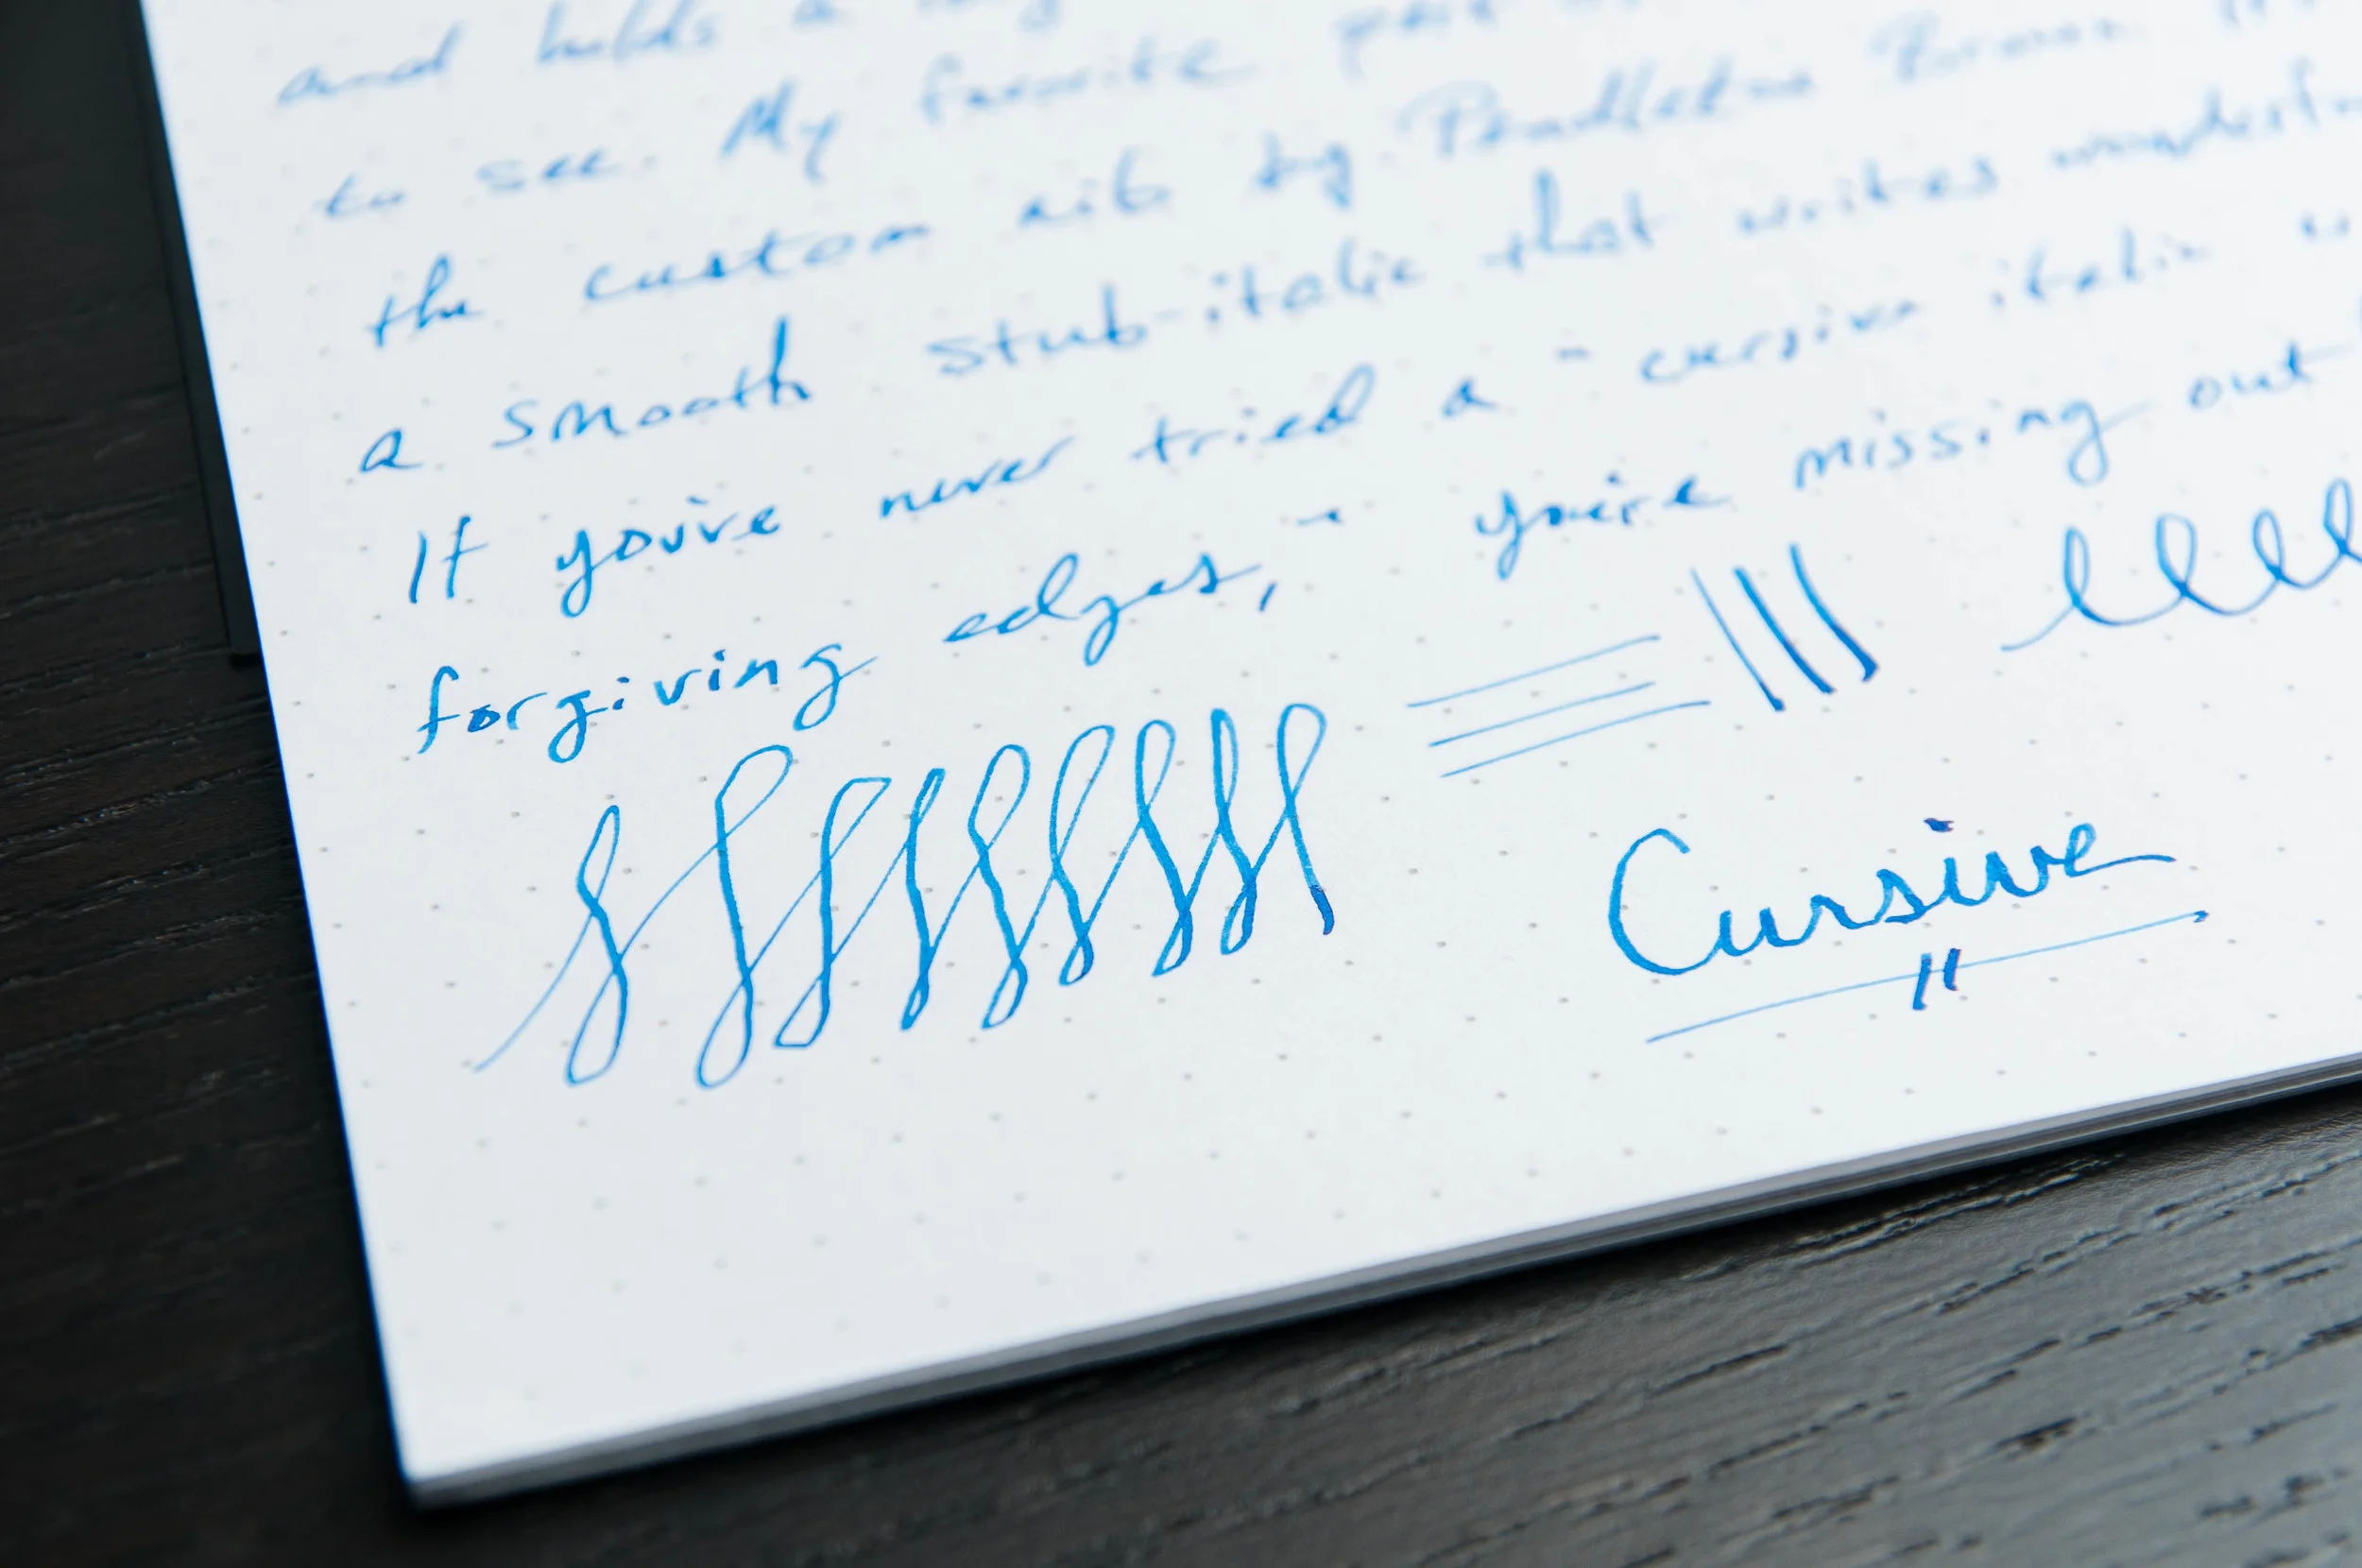 and holds a
to see. My favorite
the custom nib by Pendleton Brown
a smooth stub-italic that writes
If you've never tried a "cursive italic
forgiving edges," you're missing out
Cursive